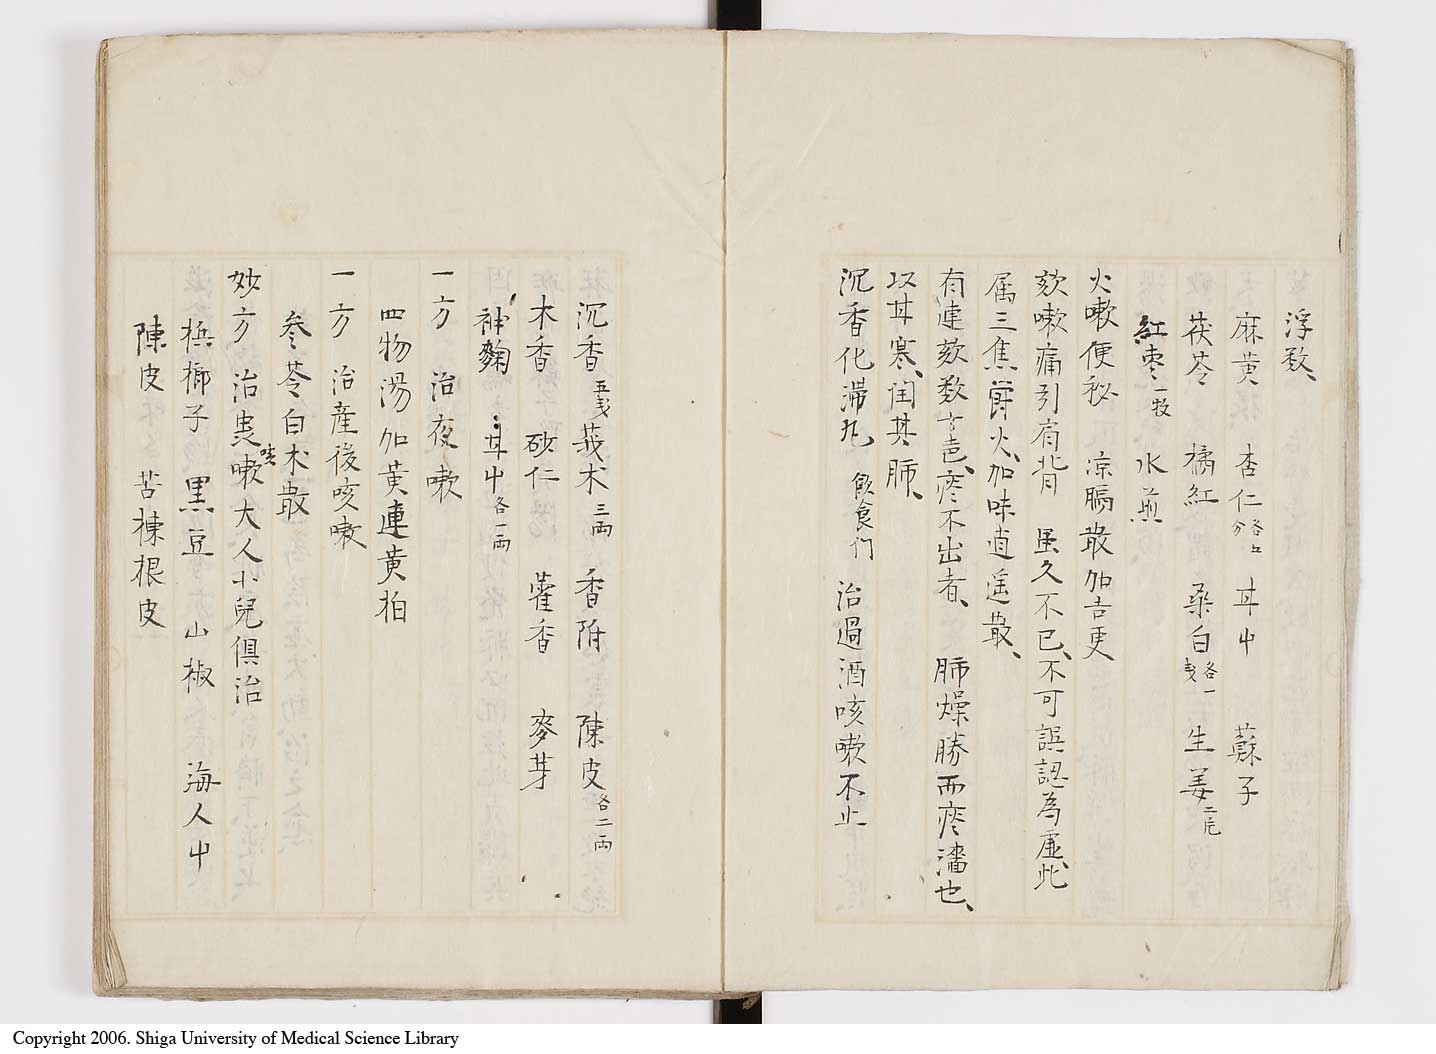 浮数、
麻黄 杏仁各上分 甘屮 蘇子
茯苓 橘紅 桑白各一戔 生姜二片
紅枣一枚 水煎
火嗽便秘 凉膈散加吉更
欬嗽痛引肩背 虽久不已、不可誤認為虚、此
属三焦欝火、加味逍遥散、
有連欬数十声、痰不出者、 肺燥勝而痰濇也、
以甘寒、閏其肺、
沉香化滞丸 飲食门 治過酒咳嗽不止
沉香五戔 莪术三両 香附 陳皮各二両
木香 砂仁 藿香 麥芽
神麴 甘屮各一両
一方 治夜嗽
四物湯加黄連黄柏
一方 治産後咳嗽
参苓白术散
妙方 治患咳嗽大人小兒俱治
梹榔子 黒豆 山椒 海人屮
陳皮 苦楝根皮
Copyright 2006. Shiga University of Medical Science Library